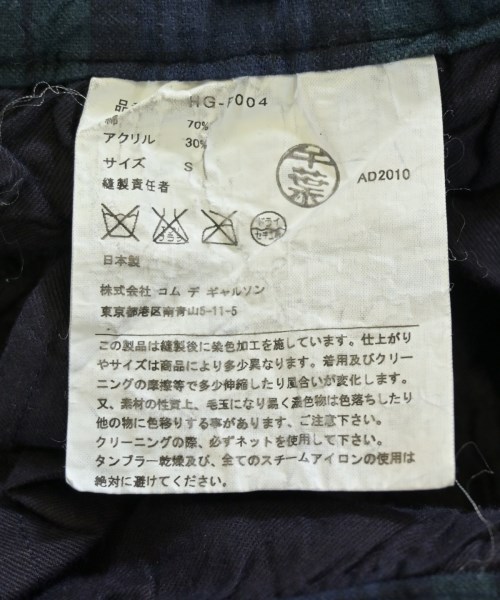 品番 HG-P004
綿 70%
アクリル 30%
サイズ S
縫製責任者
千葉
AD2010
ドライ
セキユ系
日本製
株式会社 コム デ ギャルソン
東京都港区南青山5-11-5
この製品は縫製後に染色加工を施しています。仕上がり
やサイズは商品により多少異なります。着用及びクリー
ニングの摩擦等で多少伸縮したり風合いが変化します。
又、素材の性質上、毛玉になり易く濃色物は色落ちしたり
他の物に色移りする事があります、ご注意下さい。
クリーニングの際、必ずネットを使用して下さい。
タンブラー乾燥及び、全てのスチームアイロンの使用は
絶対に避けてください。